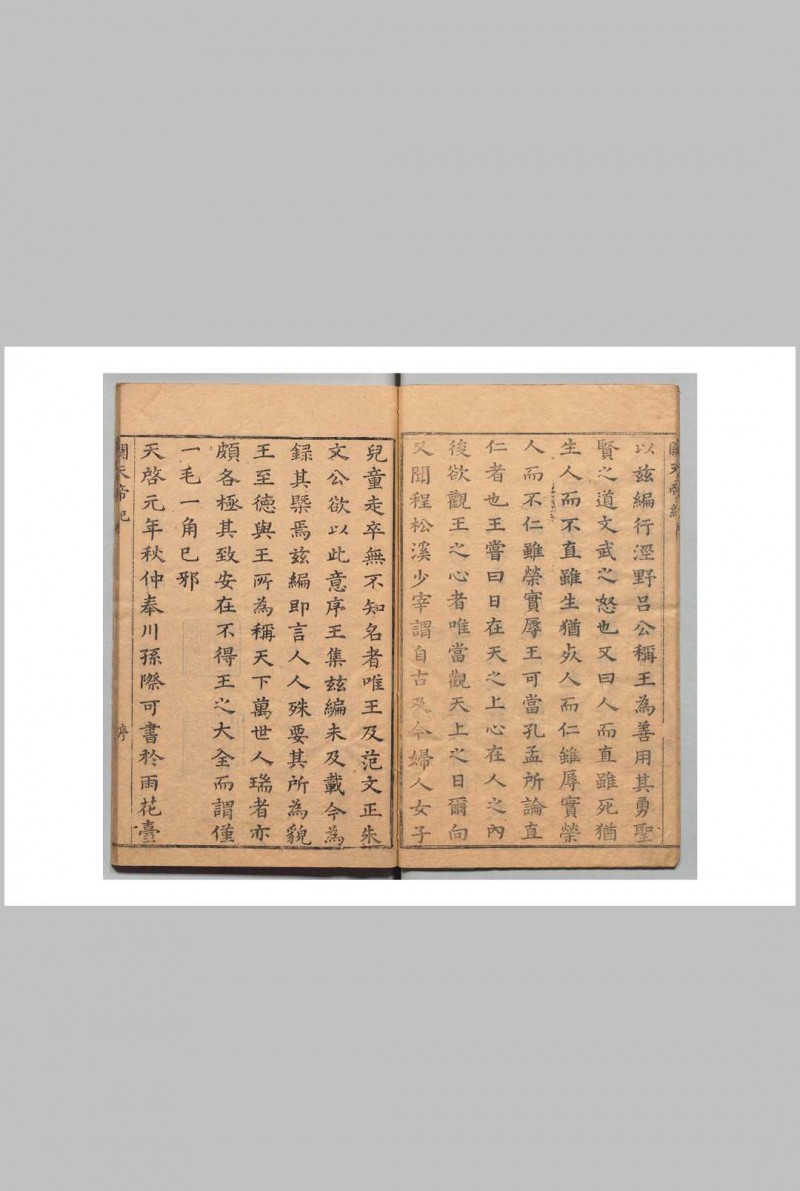 以兹編行涇野呂公稱王為善用其勇聖
賢之道文武之怒也又曰人而直雖死猶
生人而不直雖生猶死人而仁雖辱實榮
人而不仁雖榮實辱王可當孔孟所論直
仁者也王嘗曰日在天之上心在人之內
後欲觀王之心者唯當觀天上之日爾向
又聞程松溪少宰謂自古及今婦人女子
兒童走卒無不知名者唯王及范文正朱
文公欲以此意序王集兹編未及載今為
録其槩焉兹編即言人人殊要其所為貌
王至德與王所為稱天下萬世人瑞者亦
頗各極其致安在不得王之大全而謂僅
一毛一角已邪
天啓元年秋仲奉川孫際可書於雨花臺
關天帝紀
序